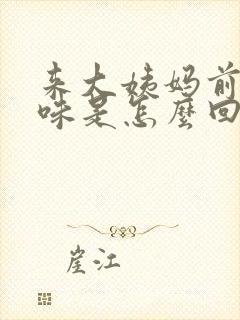 来大姨妈前
咪是怎麼回
崖江